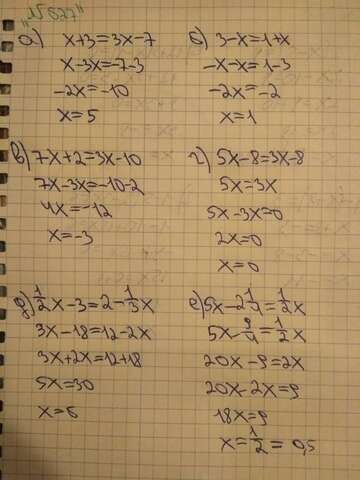 "№677"
а) x+3=3x-7
x-3x=-7-3
-2x=-10
x=5
б) 3-x=1+x
-x-x=1-3
-2x=-2
x=1
в) 7x+2=3x-10
7x-3x=-10-2
4x=-12
x=-3
г) 5x-8=3x-8
5x=3x
5x-3x=0
2x=0
x=0
д) 1/2x-3=2-1/3x
3x-18=12-2x
3x+2x=12+18
5x=30
x=6
е) 5x-2 1/4=1/2x
5x-9/4=1/2x
20x-9=2x
20x-2x=9
18x=9
x=1/2=0,5